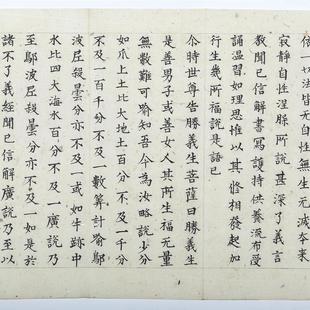 依一切法皆無自性無生無滅本來
寂靜自性涅槃所說甚深了義言
教聞已信解書寫護持供養流布受
誦溫習如理思惟以其修相發起加
行生幾所福說是語已
尒時世尊告勝義生菩薩曰勝義生
是善男子或善女人其所生福無量
無數難可喻知吾今為汝略說少分
如爪上土比大地土百分不及一千分
不及一百千分不及一數算計喻鄔
波尼殺曇分亦不及一或如牛跡中
水比四大海水百分不及一廣說乃
至鄔波尼殺曇分亦不及一如是於
諸不了義經聞已信解廣說乃至以